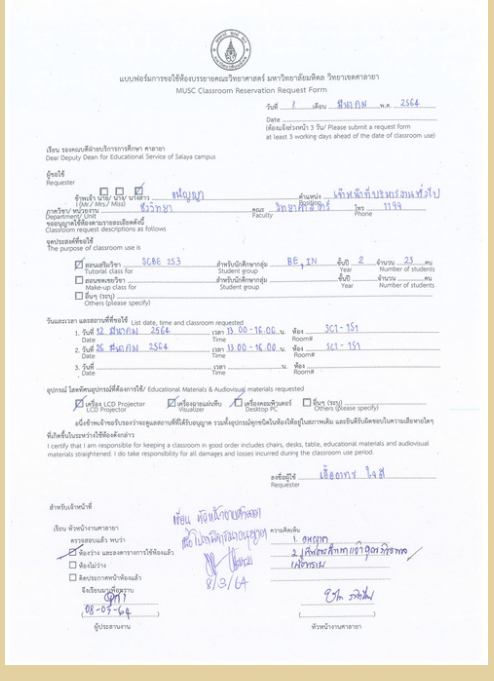 แบบฟอร์มการขอใช้ห้องบรรยายคณะวิทยาศาสตร์ มหาวิทยาลัยมหิดล วิทยาเขตศาลายา
MUSC Classroom Reservation Request Form
วันที่ 1 เดือน มีนาคม พ.ศ. 2564
Date
(ต้องแจ้งล่วงหน้า 3 วัน/ Please submit a request form
at least 3 working days ahead of the date of classroom use)
เรียน รองคณบดีฝ่ายบริการการศึกษา ศาลายา
Dear Deputy Dean for Educational Service of Salaya campus
ผู้ขอใช้
Requester
ข้าพเจ้า นาย/ นาง/ นางสาว ตำแหน่ง เจ้าหน้าที่บริหารงานทั่วไป
I (Mr./ Mrs./ Miss) Position
ภาควิชา/ หน่วยงาน ชีววิทยา คณะ วิทยาศาสตร์ โทร 1199
Department/ Unit Faculty Phone
ขออนุญาตใช้ห้องตามรายละเอียดดังนี้
Classroom request descriptions as follows
จุดประสงค์ที่ขอใช้
The purpose of classroom use is
สอนเสริมวิชา SCBE 253 สำหรับนักศึกษากลุ่ม BE, IN ชั้นปี 2 จำนวน 23 คน
Tutorial class for Student group Year Number of students
สอนชดเชยวิชา สำหรับนักศึกษากลุ่ม ชั้นปี จำนวน คน
Make-up class for Student group Year Number of students
อื่นๆ (ระบุ)
Others (please specify)
วันและเวลา และสถานที่ที่ขอใช้ List date, time and classroom requested
1. วันที่ 12 มีนาคม 2564 เวลา 13.00-16.00 น. ห้อง SC1-151
Date Time Room#
2. วันที่ 26 มีนาคม 2564 เวลา 13.00-16.00 น. ห้อง SC1-151
Date Time Room#
3. วันที่ เวลา น. ห้อง
Date Time Room#
อุปกรณ์ โสตทัศนอุปกรณ์ที่ต้องการใช้/ Educational Materials & Audiovisual materials requested
เครื่อง LCD Projector เครื่องฉายแผ่นทึบ เครื่องคอมพิวเตอร์ อื่นๆ (ระบุ)
LCD Projector Visualizer Desktop PC Others (please specify)
อนึ่งข้าพเจ้าขอรับรองว่าจะดูแลสถานที่ที่ได้รับอนุญาต รวมทั้งอุปกรณ์ทุกชนิดในห้องให้อยู่ในสภาพเดิม และยินดีรับผิดชอบในความเสียหายใดๆ
ที่เกิดขึ้นในระหว่างใช้ห้องดังกล่าว
I certify that I am responsible for keeping a classroom in good order includes chairs, desks, table, educational materials and audiovisual
materials straightened. I do take responsibility for all damages and losses incurred during the classroom use period.
ลงชื่อผู้ใช้
Requester
สำหรับเจ้าหน้าที่
เรียน หัวหน้างานศาลายา
เรียน หัวหน้างานศาลายา
เพื่อโปรดพิจารณาอนุญาต
8/3/64
ตรวจสอบแล้ว พบว่า
ห้องว่าง และลงตารางการใช้ห้องแล้ว
ห้องไม่ว่าง
ติดประกาศหน้าห้องแล้ว
จึงเรียนมาเพื่อทราบ
(08-03-64)
ผู้ประสานงาน
ความคิดเห็น
1. อนุญาต
หัวหน้างานศาลายา